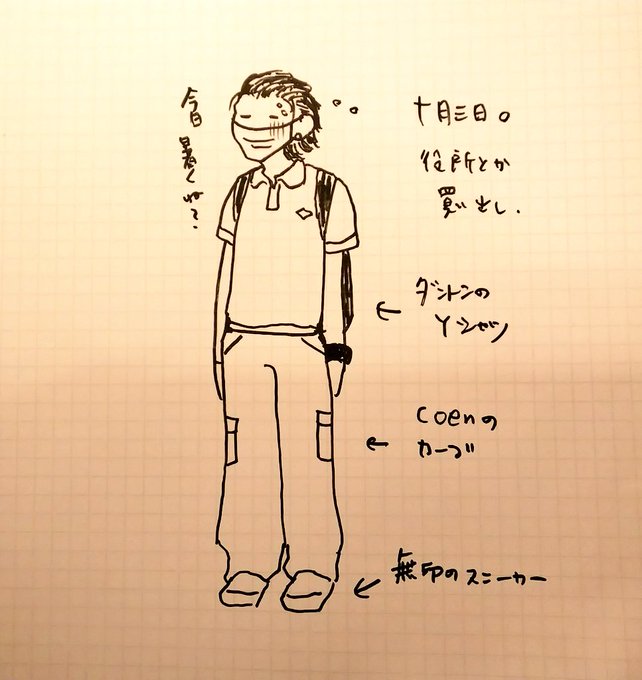 十月三日。
役所とか
買い出し.
今日
暑くね?
ダントンの
Yシャツ
coenの
カーゴ
無印のスニーカー